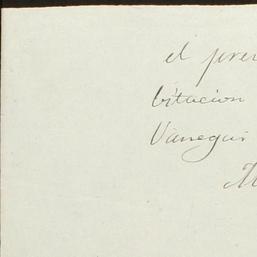 el pre
bitacion
Vanegas
M